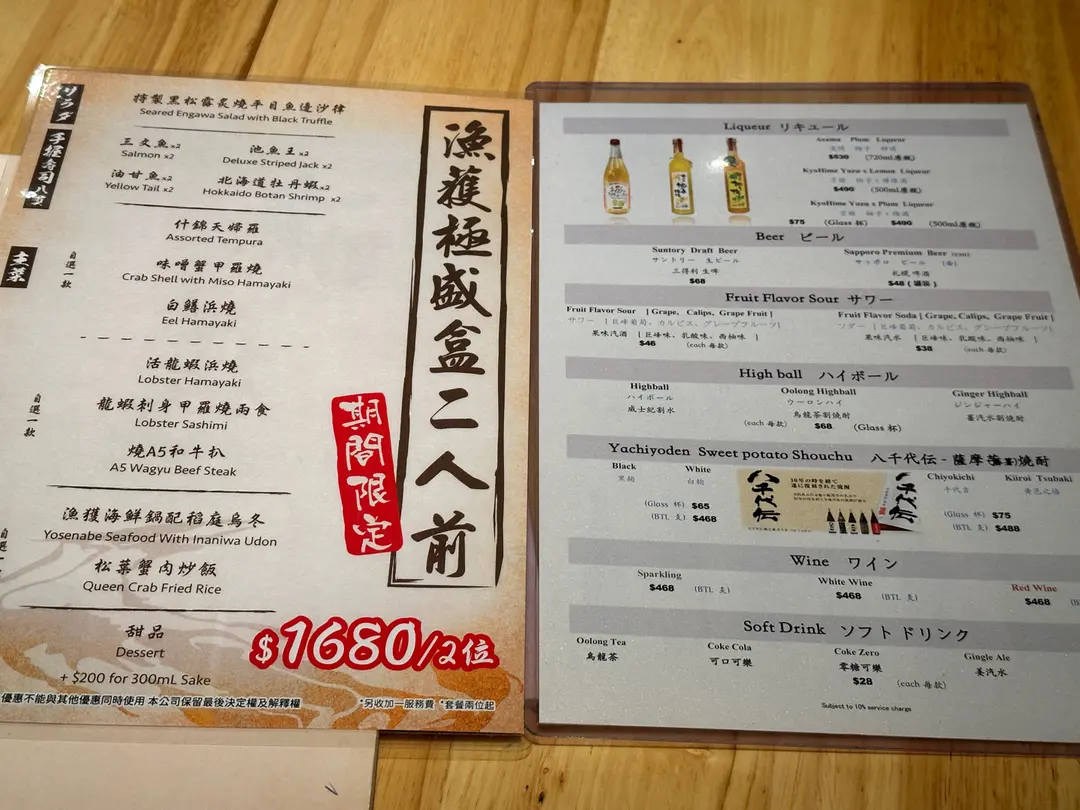 サラダ
特製黑松露炙燒平目魚邊沙律
Seared Engawa Salad with Black Truffle
手握寿司八貫
三文魚x2
Salmon x2
池魚王x2
Deluxe Striped Jack x2
油甘魚x2
Yellow Tail x2
北海道牡丹蝦x2
Hokkaido Botan Shrimp x2
什錦天婦羅
Assorted Tempura
主菜
自選一款
味噌蟹甲羅燒
Crab Shell with Miso Hamayaki
白鱔浜燒
Eel Hamayaki
自選一款
活龍蝦浜燒
Lobster Hamayaki
龍蝦刺身甲羅燒兩食
Lobster Sashimi
燒A5和牛扒
A5 Wagyu Beef Steak
漁獲海鮮鍋配稻庭烏冬
Yosenabe Seafood With Inaniwa Udon
松葉蟹肉炒飯
Queen Crab Fried Rice
甜品
Dessert
+ $200 for 300mL Sake
漁獲極盛盒二人前
期間限定
$1680/2位
優惠不能與其他優惠同時使用 本公司保留最後決定權及解釋權
*另收加一服務費 *套餐兩位起
Liqueur リキュール
Plum Liqueur
$530 (720ml原瓶)
KyoHime Yuzu x Lemon Liqueur
$490 (500ml原瓶)
KyoHime Yuzu x Plum Liqueur
$75 (Glass 杯) $490 (500ml原瓶)
Beer ビール
Suntory Draft Beer
サントリー 生ビール
三得利 生啤
$68
Sapporo Premium Beer (can)
サッポロ ビール (缶)
札幌 啤酒
$48 ( 罐裝 )
Fruit Flavor Sour サワー
Fruit Flavor Sour [ Grape, Calips, Grape Fruit ]
サワー [ 巨峰葡萄、カルピス、グレープフルーツ]
果味汽酒 [ 巨峰味、乳酸味、西柚味 ]
$46 (each 每款)
Fruit Flavor Soda [ Grape, Calips, Grape Fruit ]
ソダー [ 巨峰葡萄、カルピス、グレープフルーツ]
果味汽水 [ 巨峰味、乳酸味、西柚味 ]
$38 (each 每款)
High ball ハイボール
Highball
ハイボール
威士紀割水
Oolong Highball
ウーロンハイ
烏龍茶割燒酎
(each 每款) $68 (Glass 杯)
Ginger Highball
ジンジャーハイ
薑汽水割燒酎
Yachiyoden Sweet potato Shouchu 八千代伝 - 薩摩燒酎
Black
黒麹
White
白麹
(Glass 杯) $65
(BTL 支) $468
八千代伝
八千代伝
Chiyokichi
千代吉
Kiiroi Tsubaki
黄色之椿
(Glass 杯) $75
(BTL 支) $488
Wine ワイン
Sparkling
$468 (BTL 支)
White Wine
$468 (BTL 支)
Red Wine
$468
Soft Drink ソフト ドリンク
Oolong Tea
烏龍茶
Coke Cola
可口可樂
Coke Zero
零糖可樂
Gingle Ale
姜汽水
$28 (each 每款)
Subject to 10% service charge